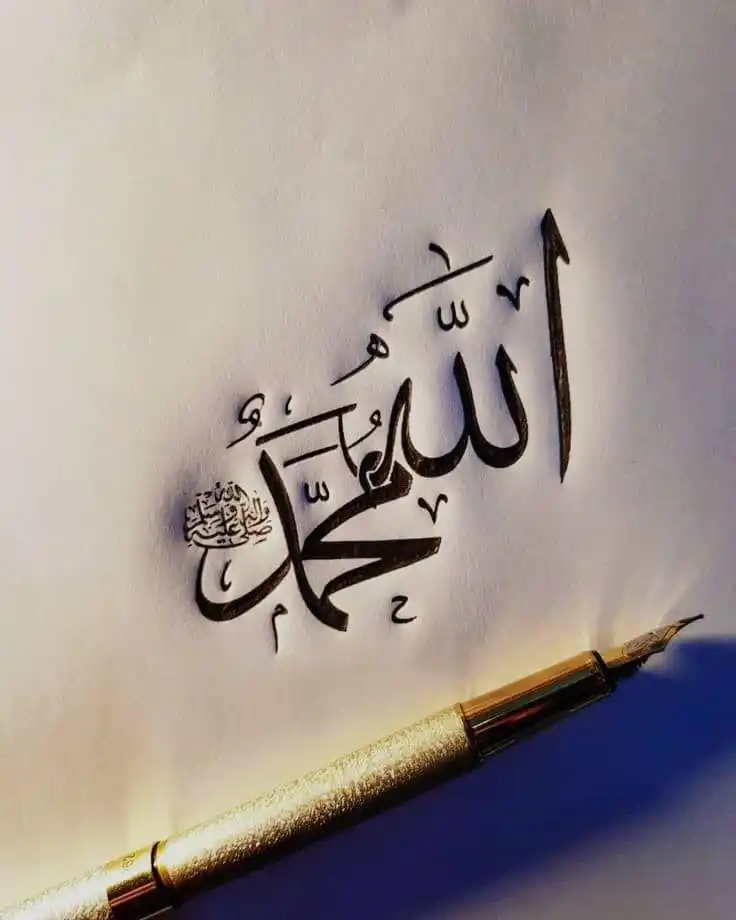 اللّٰهُ
مُحَمَّدٌ
صلى الله عليه وآله وسلم